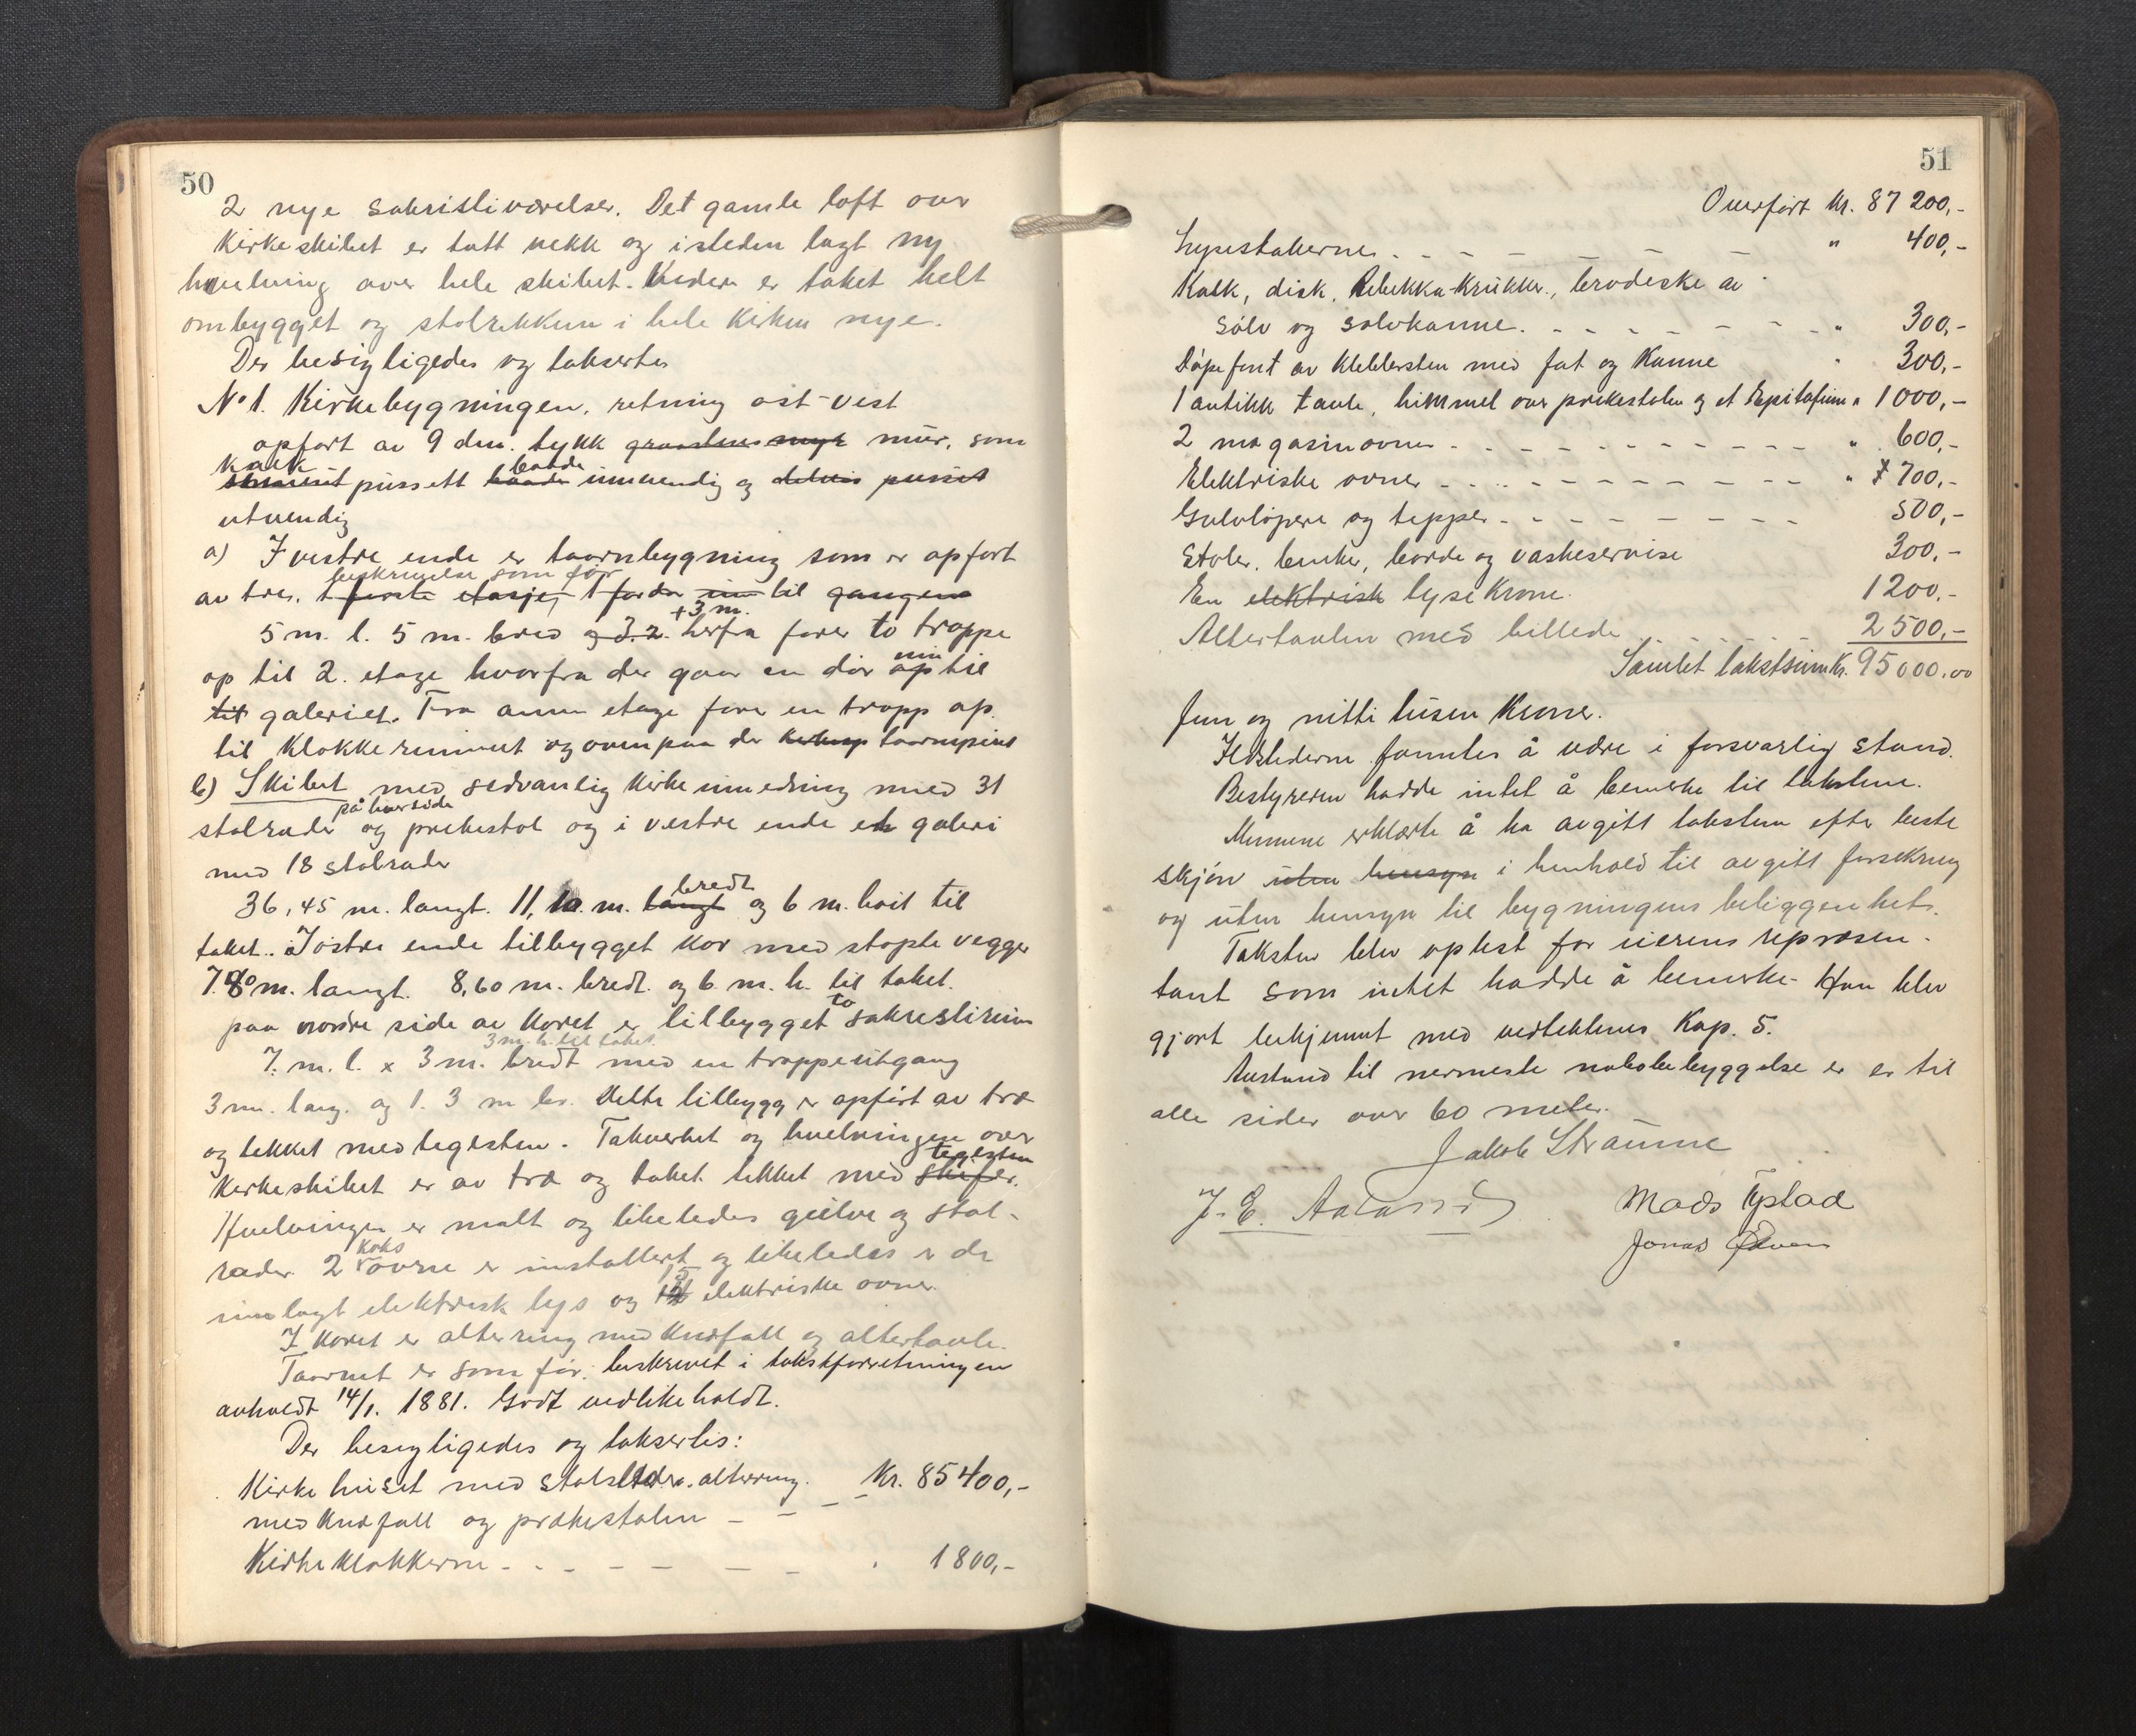 50
2 nye sakristiværelser. Det gamle loft over
Kirkeskibet er tatt vekk og isteden lagt ny
hvelving over hele skibet. Videre er taket helt
ombygget og stolrekken i hele Kirken nye.
Der besigtigedes og taksertes
No 1. Kirkebygningen, retning øst-vest
opført av 9 dm. tykk graastens myr mur, som
Kalk
pussett baade innvendig og delvis pusset
utvendig
a) I vestre ende er taarnbygning som er opført
beskrivelse som før
av tre. I første etasje, fører inn til gangen
+ 3 m.
5 m. l. 5 m. bred og 3.2. herfra fører to trappe
op til 2. etage hvorfra der gaar en dør inn til
til galeriet. Fra annen etage fører en trapp op
til Klokkerummet og ovenpaa der taarnspiret
b) Skibet med sedvanlig Kirkeinnredning med 31
på hver side
stolrader og prekestol og i vestre ende et galeri
med 18 stolrader
bredt
36,45 m. langt. 11,10 m. langt og 6 m. høit til
taket. I østre ende tilbygget Kor med støpte vegger
7.80 m. langt. 8,60 m. bredt. og 6 m. h. til taket.
paa nordre side av Koret er tilbygget to sakrestirum
3 m. h. til taket.
7. m. l. x 3 m. bredt med en trappeutgang
3 m. lang. og 1.3 m br. Dette tilbygg er opført av træ
og tekket med teglsten. Takverket og hvelvingen over
teglsten
Kirkeskibet er av træ og taket tekket med skifer.
Hvelvingen er malt og likeledes gulve og stol-
koks
rader. 2 ovne er installert og likeledes er der
15
innlagt elektrisk lys og elektriske ovner.
I Koret er altering med Knæfall og altertavle.
Taarnet er som før beskrevet i takstforretningen
avholdt 14/1. 1881. Godt vedlikeholdt.
Der besigtigedes og taksertes:
Kirkehuset med stolerader, altering. Kr. 85400,-
med Knæfall og prækestolen - -
Kirkeklokkerne - - - - - 1800,-
51
Overført Kr. 87 200,-
Lysestakerne - - - - " 400,-
Kalk, disk, Rebekka-Krukke, brødeske av
sølv og sølvkanne. - - - - - " 300,-
Døpefont av Klebbersten med fat og Kanne " 300,-
1 antikk tavle, himmel over prekestolen og et Epitafium " 1000,-
2 magasinovner - - - - - " 600,-
Elektriske ovner - - - - - " 700,-
Gulvløpere og tepper - - - - - 500,-
Stoler, benker, borde og vaskeservise 300,-
En elektrisk lyseKrone. 1200,-
Altertavlen med billede - - - - 2500,-
Samlet takstsum Kr. 95000.00
Fem og nitti tusen Kroner.
Ildstederne fanntes å være i forsvarlig stand.
Bestyreren hadde intet å bemerke til taksten.
Mennene erklærte å ha avgitt taksten efter beste
skjøn uten hensyn i henhold til avgitt forsikring
og uten hensyn til bygningens beliggenhet.
Taksten blev oplest for eierens represen-
tant som intet hadde å bemerke. Han blev
gjort bekjennt med vedtektenes Kap. 5.
Avstand til nermeste nabobebyggelse er er til
alle sider over 60 meter.
Jakob Straume
J. E. Mads Tystad
Jonas